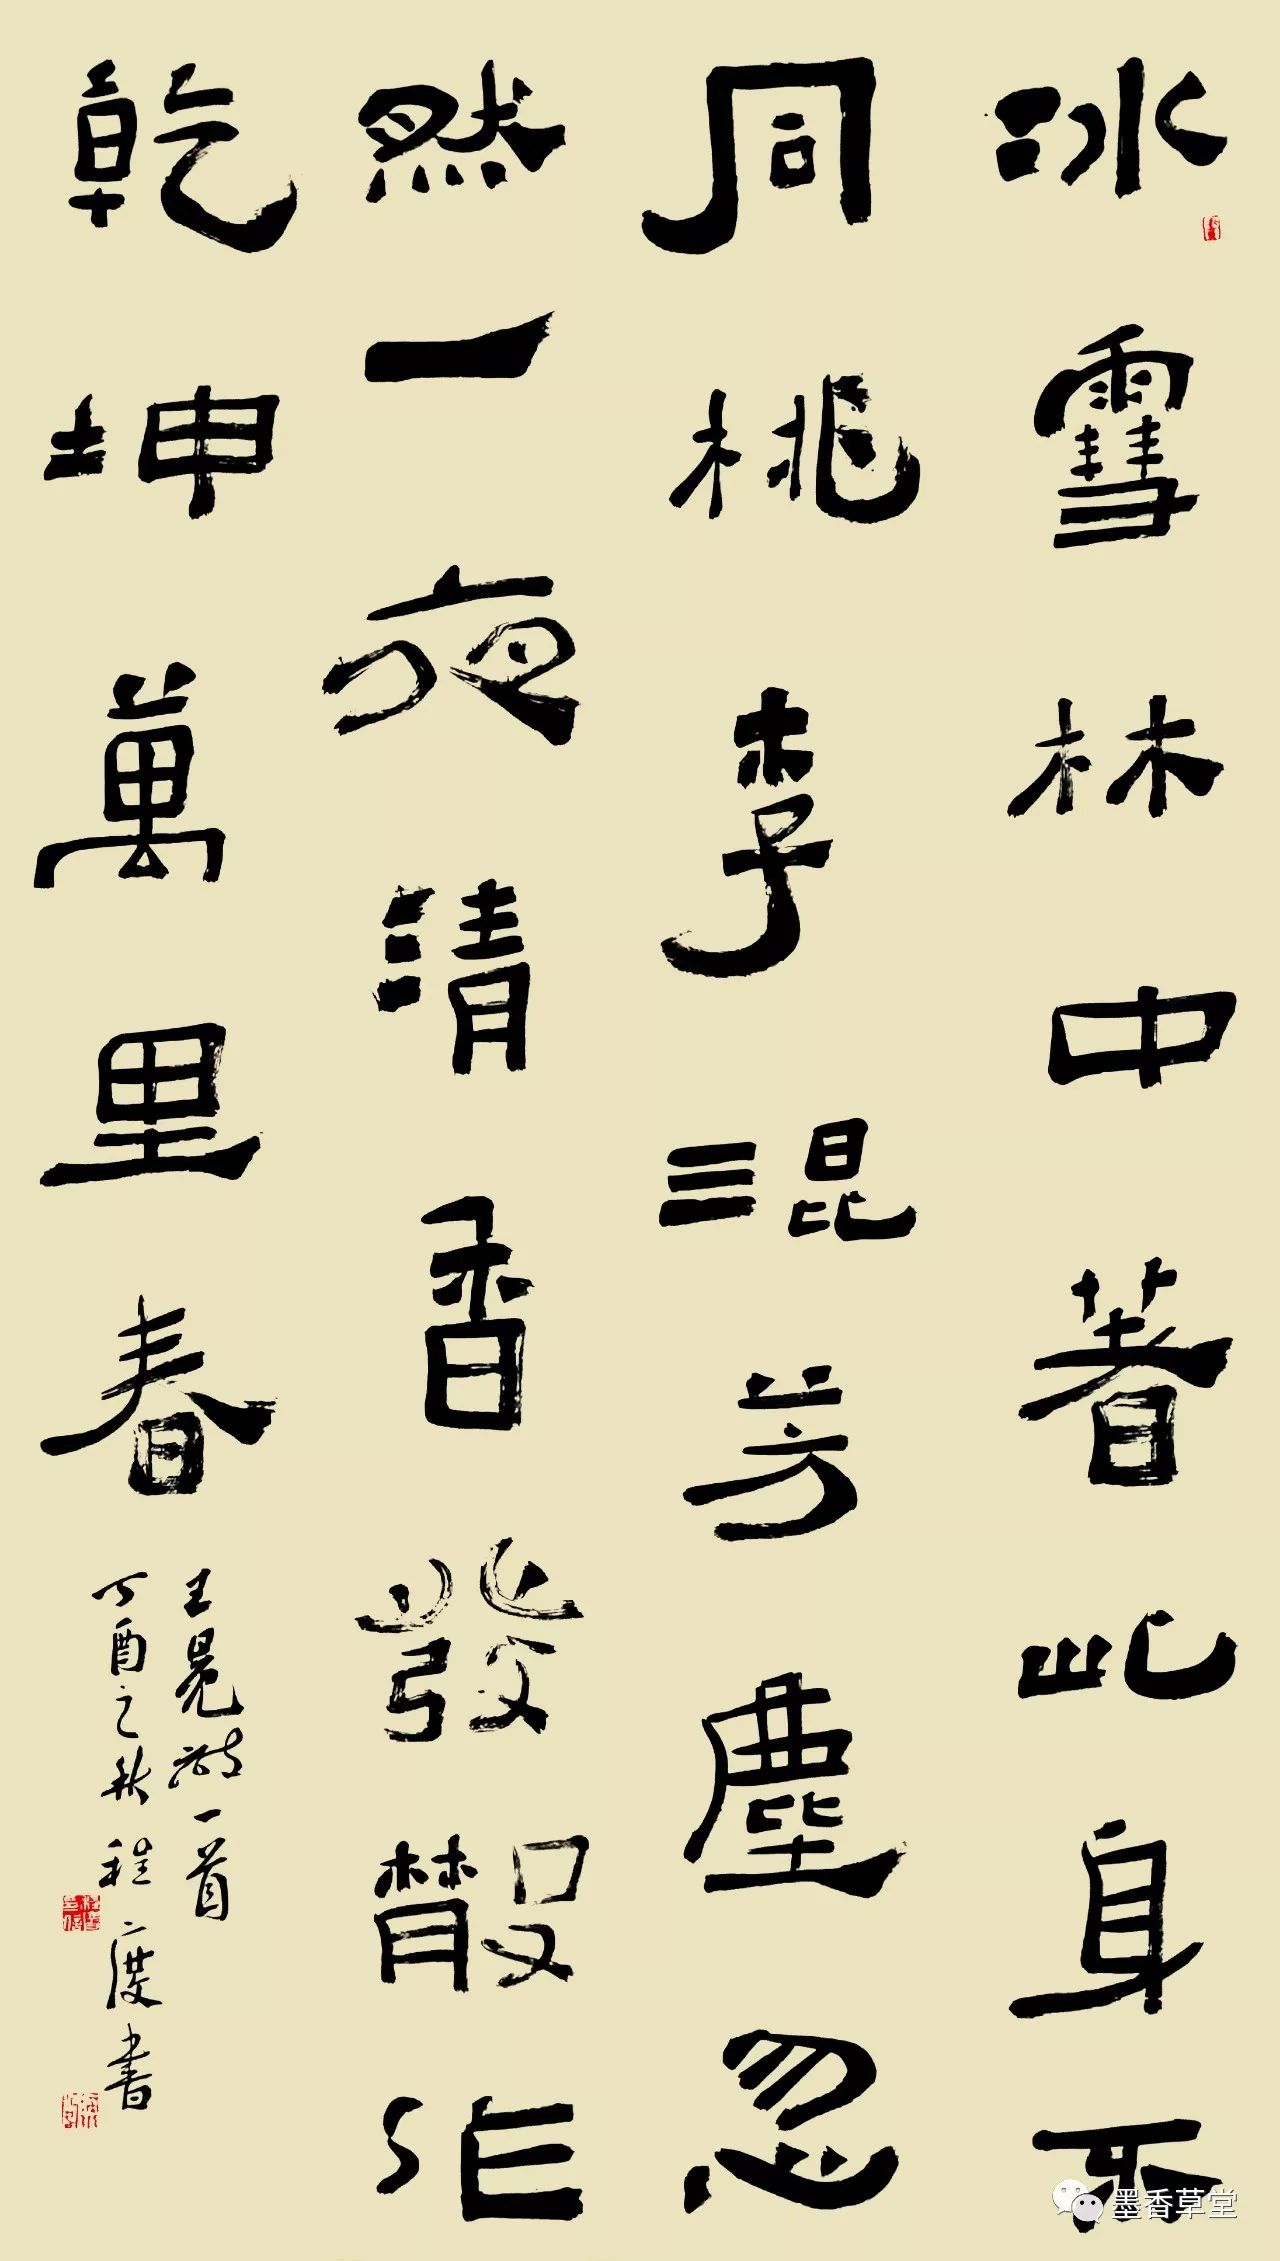 冰雪林中著此身不
同桃李混芳塵忽
然一夜清香發散作
乾坤萬里春
王冕詩一首
丁酉之秋程度書
墨香草堂